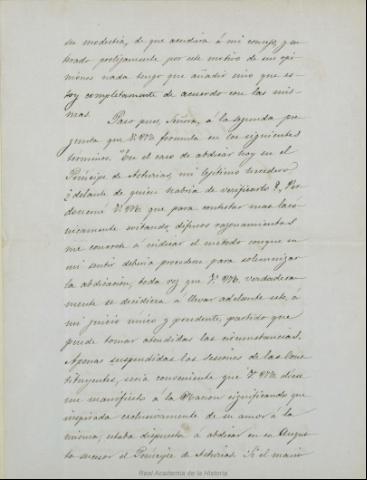 su modestia, de que acudiera á mi consejo, y en
terado prolijamente por este motivo de sus opi
niones nada tengo que añadir sino que es-
toy completamente de acuerdo con las mis-
mas.
Paso pues, Señora, á la segunda pre
gunta que V. M. formula en los siguientes
terminos. "En el caso de abdicar hoy en el
Principe de Asturias, mi legitimo heredero
¿delante de quien habria de verificarlo?" Per
doneme V. M. que para contestar mas laco-
nicamente evitando difusos razonamientos
me concrete á indicar el metodo conque en
mi sentir debiera procederse para solemnizar
la abdicacion, toda vez que V. M. verdadera
mente se decidiera á llevar adelante este, á
mi juicio unico y prudente, partido que
puede tomar atendidas las circunstancias.
Apenas suspendidas las sesiones de las Cons
tituyentes, seria conveniente que V. M. diese
un manifiesto á la Nacion significando que
inspirada exclusivamente de su amor á la
misma, estaba dispuesta á abdicar en su Augus
to sucesor el Principe de Asturias. Si el mani
Real Academia de la Historia